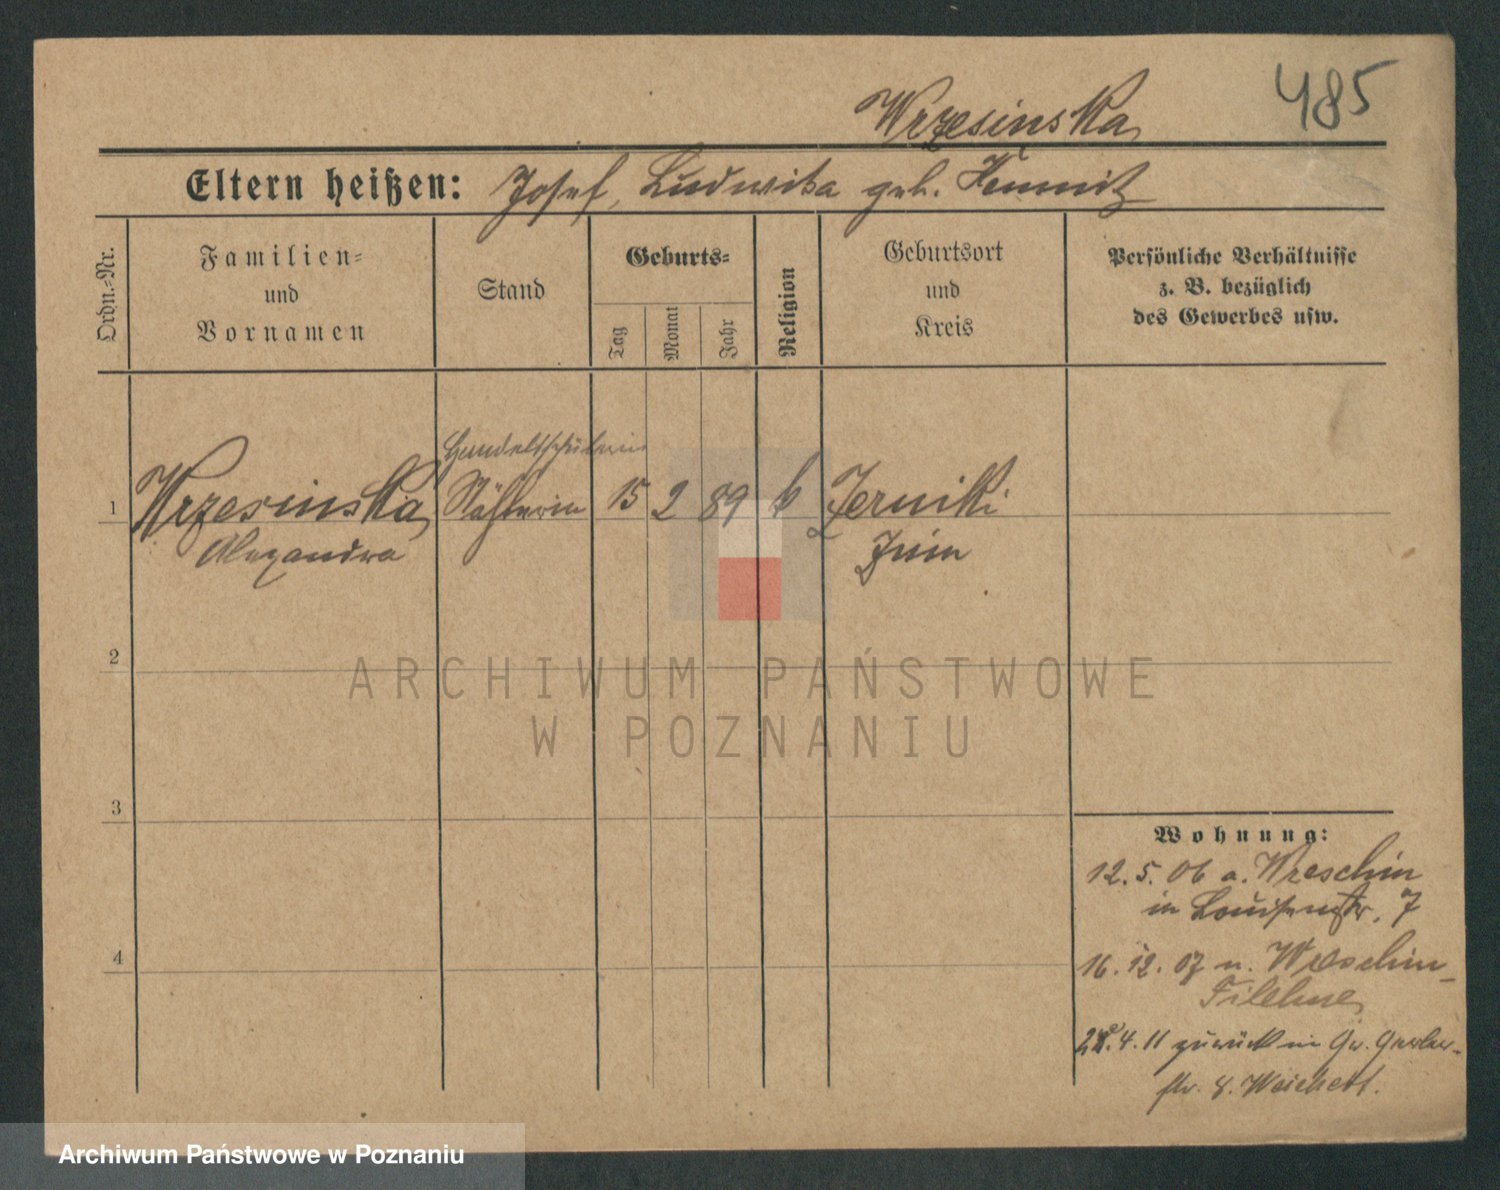 Wrzesinska
485
Eltern heißen: Josef, Ludwika geb. Kemnitz
Ordn.-Nr.
Familien-
und
Vornamen
Stand
Geburts-
Tag
Monat
Jahr
Religion
Geburtsort
und
Kreis
Persönliche Verhältnisse
z. B. bezüglich
des Gewerbes usw.
Handelsschülerin
1 Wrzesinska Näherin 15 2 89 k Zerniki
Alexandra Znin
2
3
4
ARCHIWUM PAŃSTWOWE
W POZNANIU
Wohnung:
12.5.06 a. Wreschin
in Louisenstr. 7
16.12.07 n. Wreschin-
Filehne
28.4.11 zurück in Gr. Gerber-
str. 8. Weichert.
Archiwum Państwowe w Poznaniu